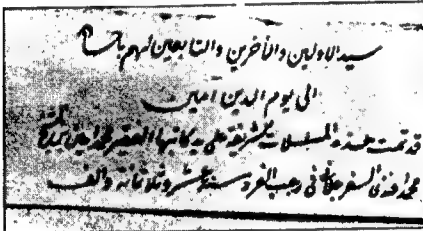 سيد الاولين والآخرين والتابعين لهم باحسان
الى يوم الدين امين
قد تمت هذه المسلسلات الشريفة على يد كاتبها الفقير محمد امين
محمد افندى السفرجلانى فى رجب الفرد سنة عشر وثلاثمائة والف